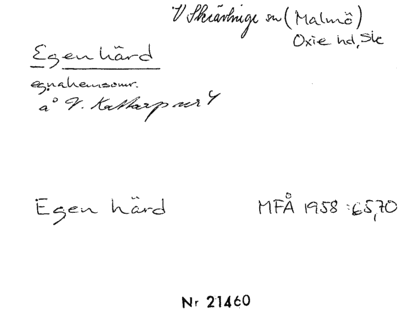 V Skrävlinge sn (Malmö)
Oxie hd, Sk
Egen härd
egnahemsomr.
å V. Kattarp nr 4
Egen härd MFÅ 1958:65,70
Nr 21460